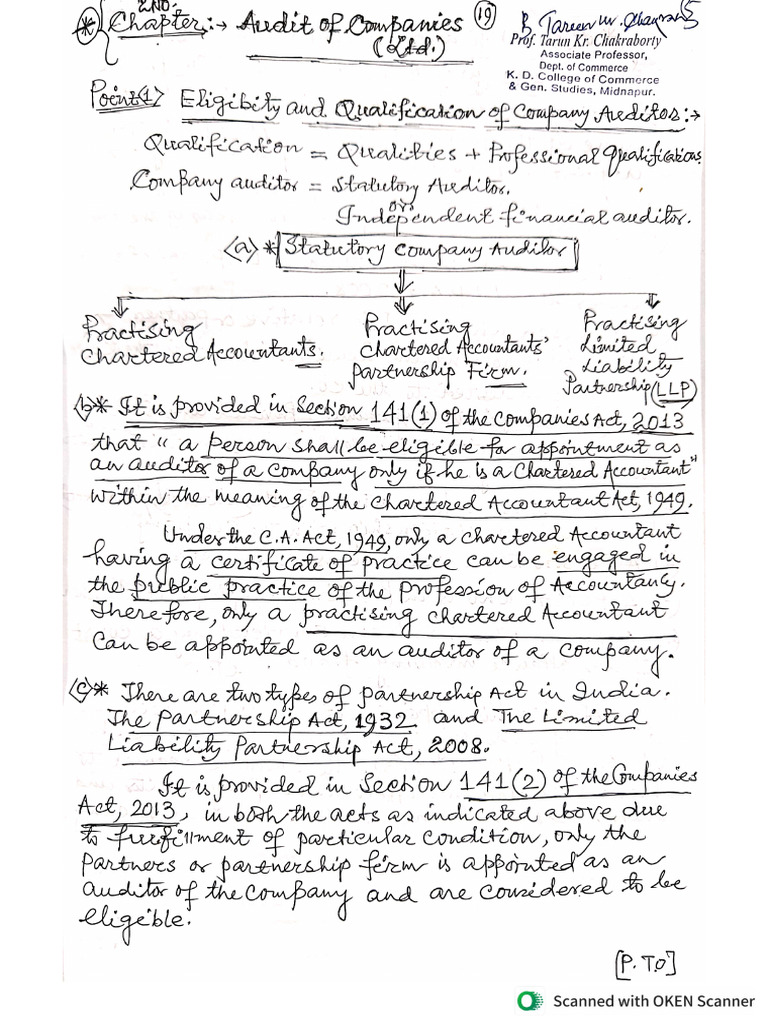 2ND.
* Chapter :→ Audit of Companies (19)
(Ltd.)
Prof. Tarun Kr. Chakraborty
Associate Professor,
Dept. of Commerce
K. D. College of Commerce
& Gen. Studies, Midnapur.
Point 1> Eligibity and Qualification of Company Auditors :→
Qualification = Qualities + Professional Qualifications.
Company auditor = Statutory Auditor.
or
Independent financial auditor.
<a>* Statutory Company Auditor
Practising Chartered Accountants.
Practising Chartered Accountants' Partnership Firm.
Practising Limited Liability Partnership (LLP)
<b>* It is provided in Section 141(1) of the Companies Act, 2013
that "a person shall be eligible for appointment as
an auditor of a company only if he is a Chartered Accountant"
within the meaning of the Chartered Accountant Act, 1949.
Under the C.A. Act, 1949, only a chartered Accountant
having a certificate of practice can be engaged in
the public practice of the profession of Accountancy.
Therefore, only a practising chartered Accountant
can be appointed as an auditor of a company.
<c>* There are two types of partnership Act in India.
The Partnership Act, 1932 and The Limited
Liability Partnership Act, 2008.
It is provided in Section 141(2) of the Companies
Act, 2013, in both the acts as indicated above due
to fulfillment of particular condition, only the
partners or partnership firm is appointed as an
auditor of the company and are considered to be
eligible.
[P.TO]
Scanned with OKEN Scanner